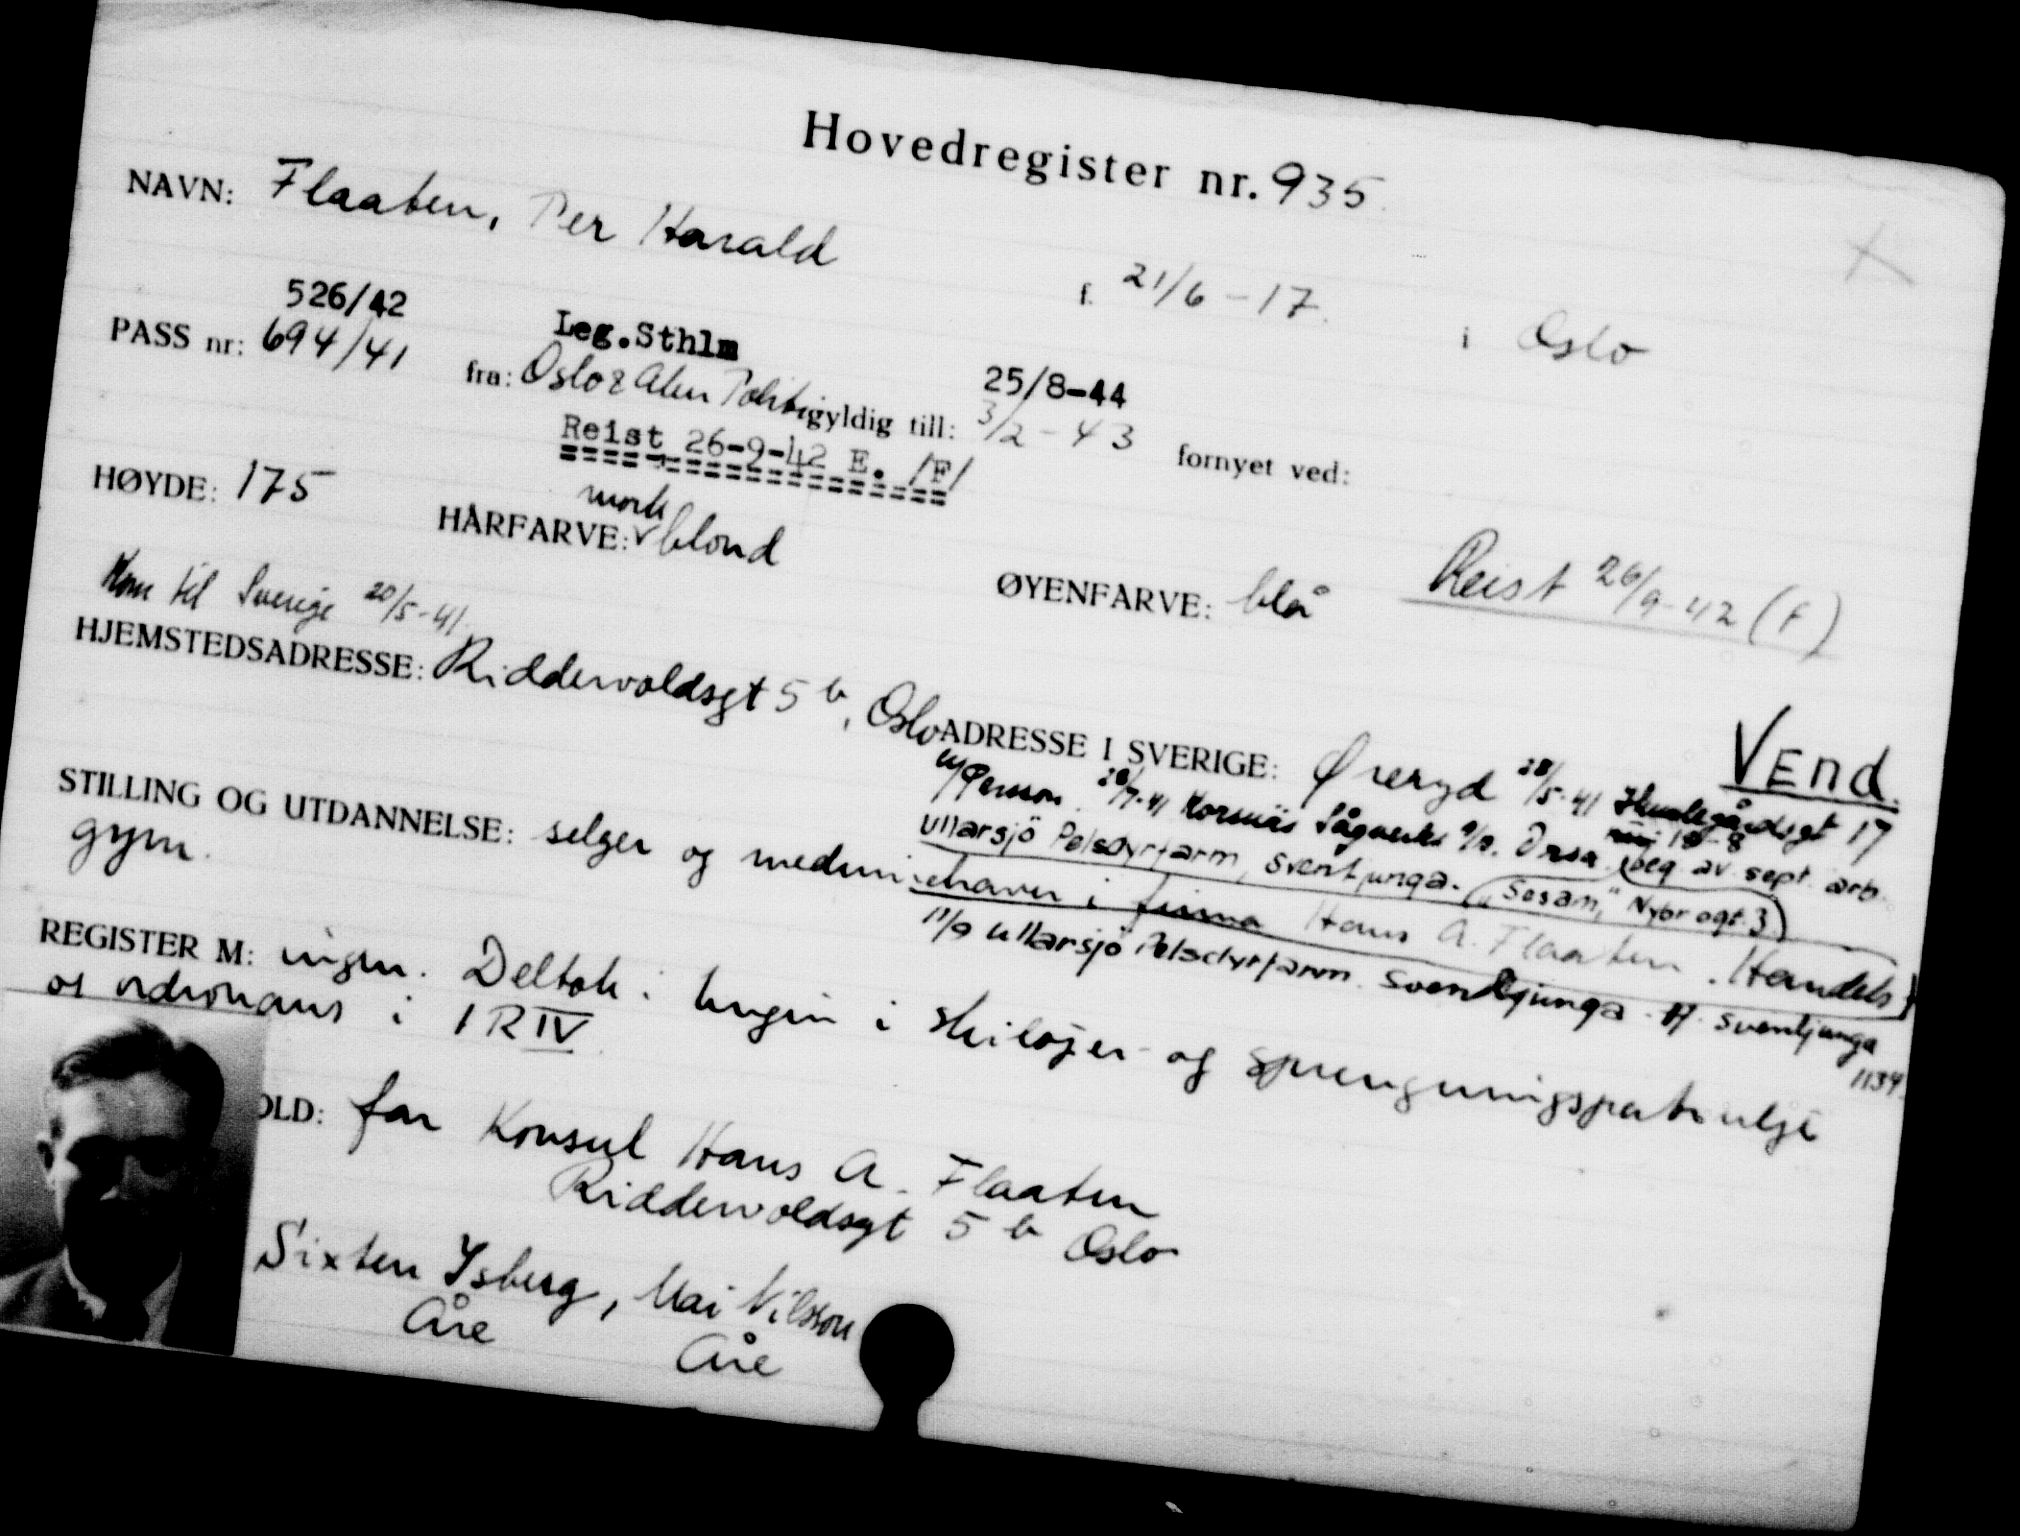 Hovedregister nr. 935
NAVN: Flaaten, Per Harald f. 21/6-17. i Oslo
526/42 Leg.Sthlm 25/8-44
PASS nr: 694/41 fra: Oslo & Aker Politi gyldig till: 3/2-43 fornyet ved:
Reist 26-9-42 E. /F/
HØYDE: 175 HÅRFARVE: mørk blond ØYENFARVE: blå Reist 26/9-42 (F)
Kom til Sverige 20/5-41.
HJEMSTEDSADRESSE: Riddervoldsgt 5 b, Oslo ADRESSE I SVERIGE: Øreryd 28/5-41 Humlegårdsgt 17
VEnd.
c/Persson. 28/7-41 Korsnäs Sågverks A/B. Orsa. beg av sept. arb.
Ullarsjö Pelsdyrfarm, Svenljunga. "Sesam," Nybrogt. 3
STILLING OG UTDANNELSE: selger og medinnehaver i firma Hans A. Flaaten. Handels
gym.
11/9 Ullarsjö Pelsdyrfarm. Svenljunga. tf. Svenljunga
1134.
REGISTER M: ingen. Deltok i krigen i skiløper- og sprengningspatrulje
os ordonans i IR IV
OLD: far Konsul Hans A. Flaaten
Riddervoldsgt 5 b Oslo
Sixten Ysberg, Mai Nilsson
Åre Åre